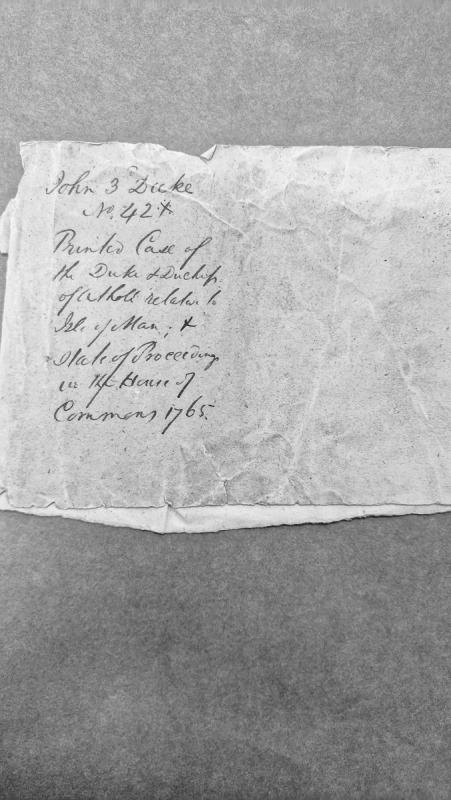 John 3d Duke
No. 42 +
Printed Case of
the Duke & Duchess
of Atholl relative to
Isle of Man, &
State of Proceedings
in the House of
Commons 1765.